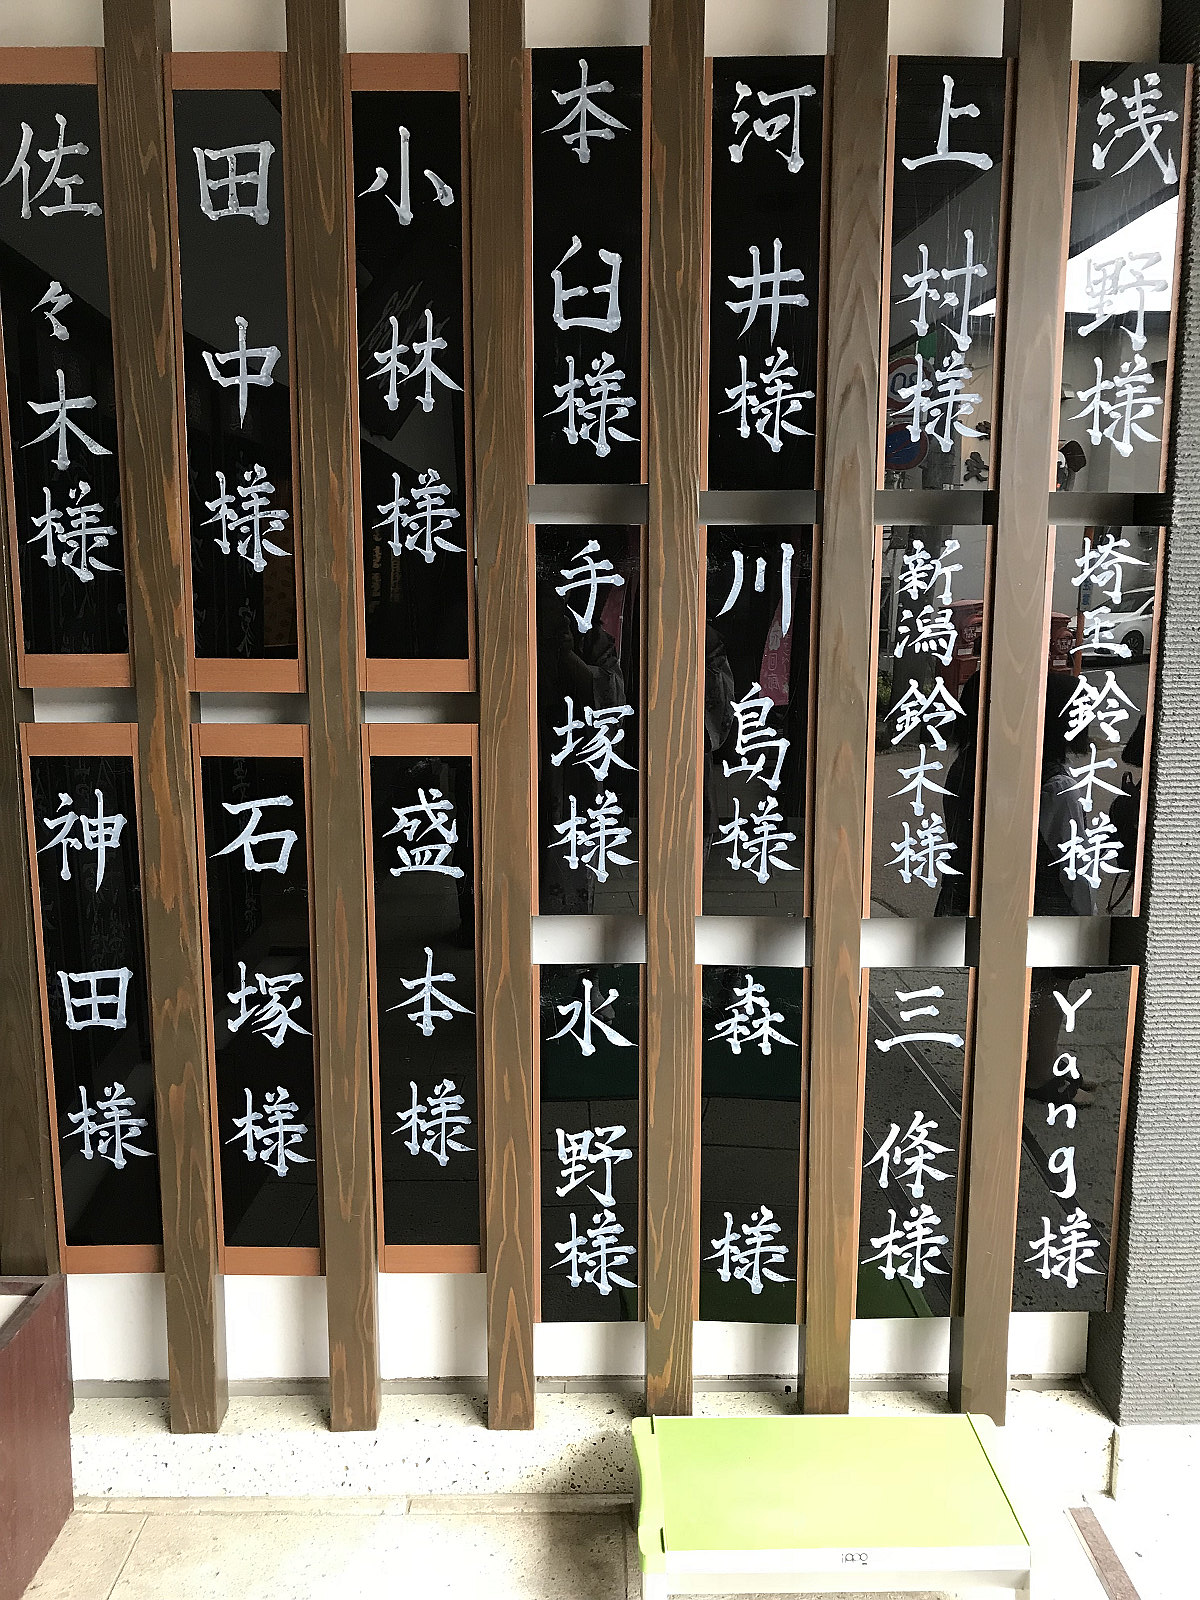 浅野様
上村様
河井様
本臼様
埼玉鈴木様
新潟鈴木様
川島様
手塚様
Yang様
三條様
森様
水野様
小林様
田中様
佐々木様
盛本様
石塚様
神田様